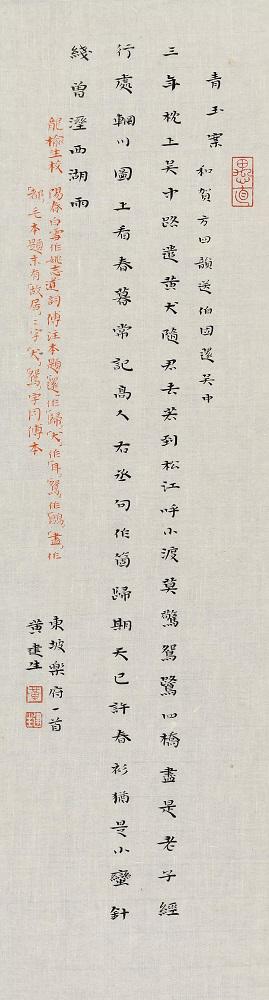 思直
青玉案 和賀方回韻送伯固還吳中
三年枕上吳中路遣黃犬隨君去若到松江呼小渡莫驚鴛鷺四橋盡是老子經
行處輞川圖上看春暮常記高人右丞句作箇歸期天已許春衫猶是小蠻針
綫曾溼西湖雨
龍榆生校 陽春白雪作姚志道詞傅注本題還作歸,犬,作耳,鴛,作鷗,盡,作
都,毛本題末有故居,二字,犬,鴛字同傅本
東坡樂府一首
黃建生